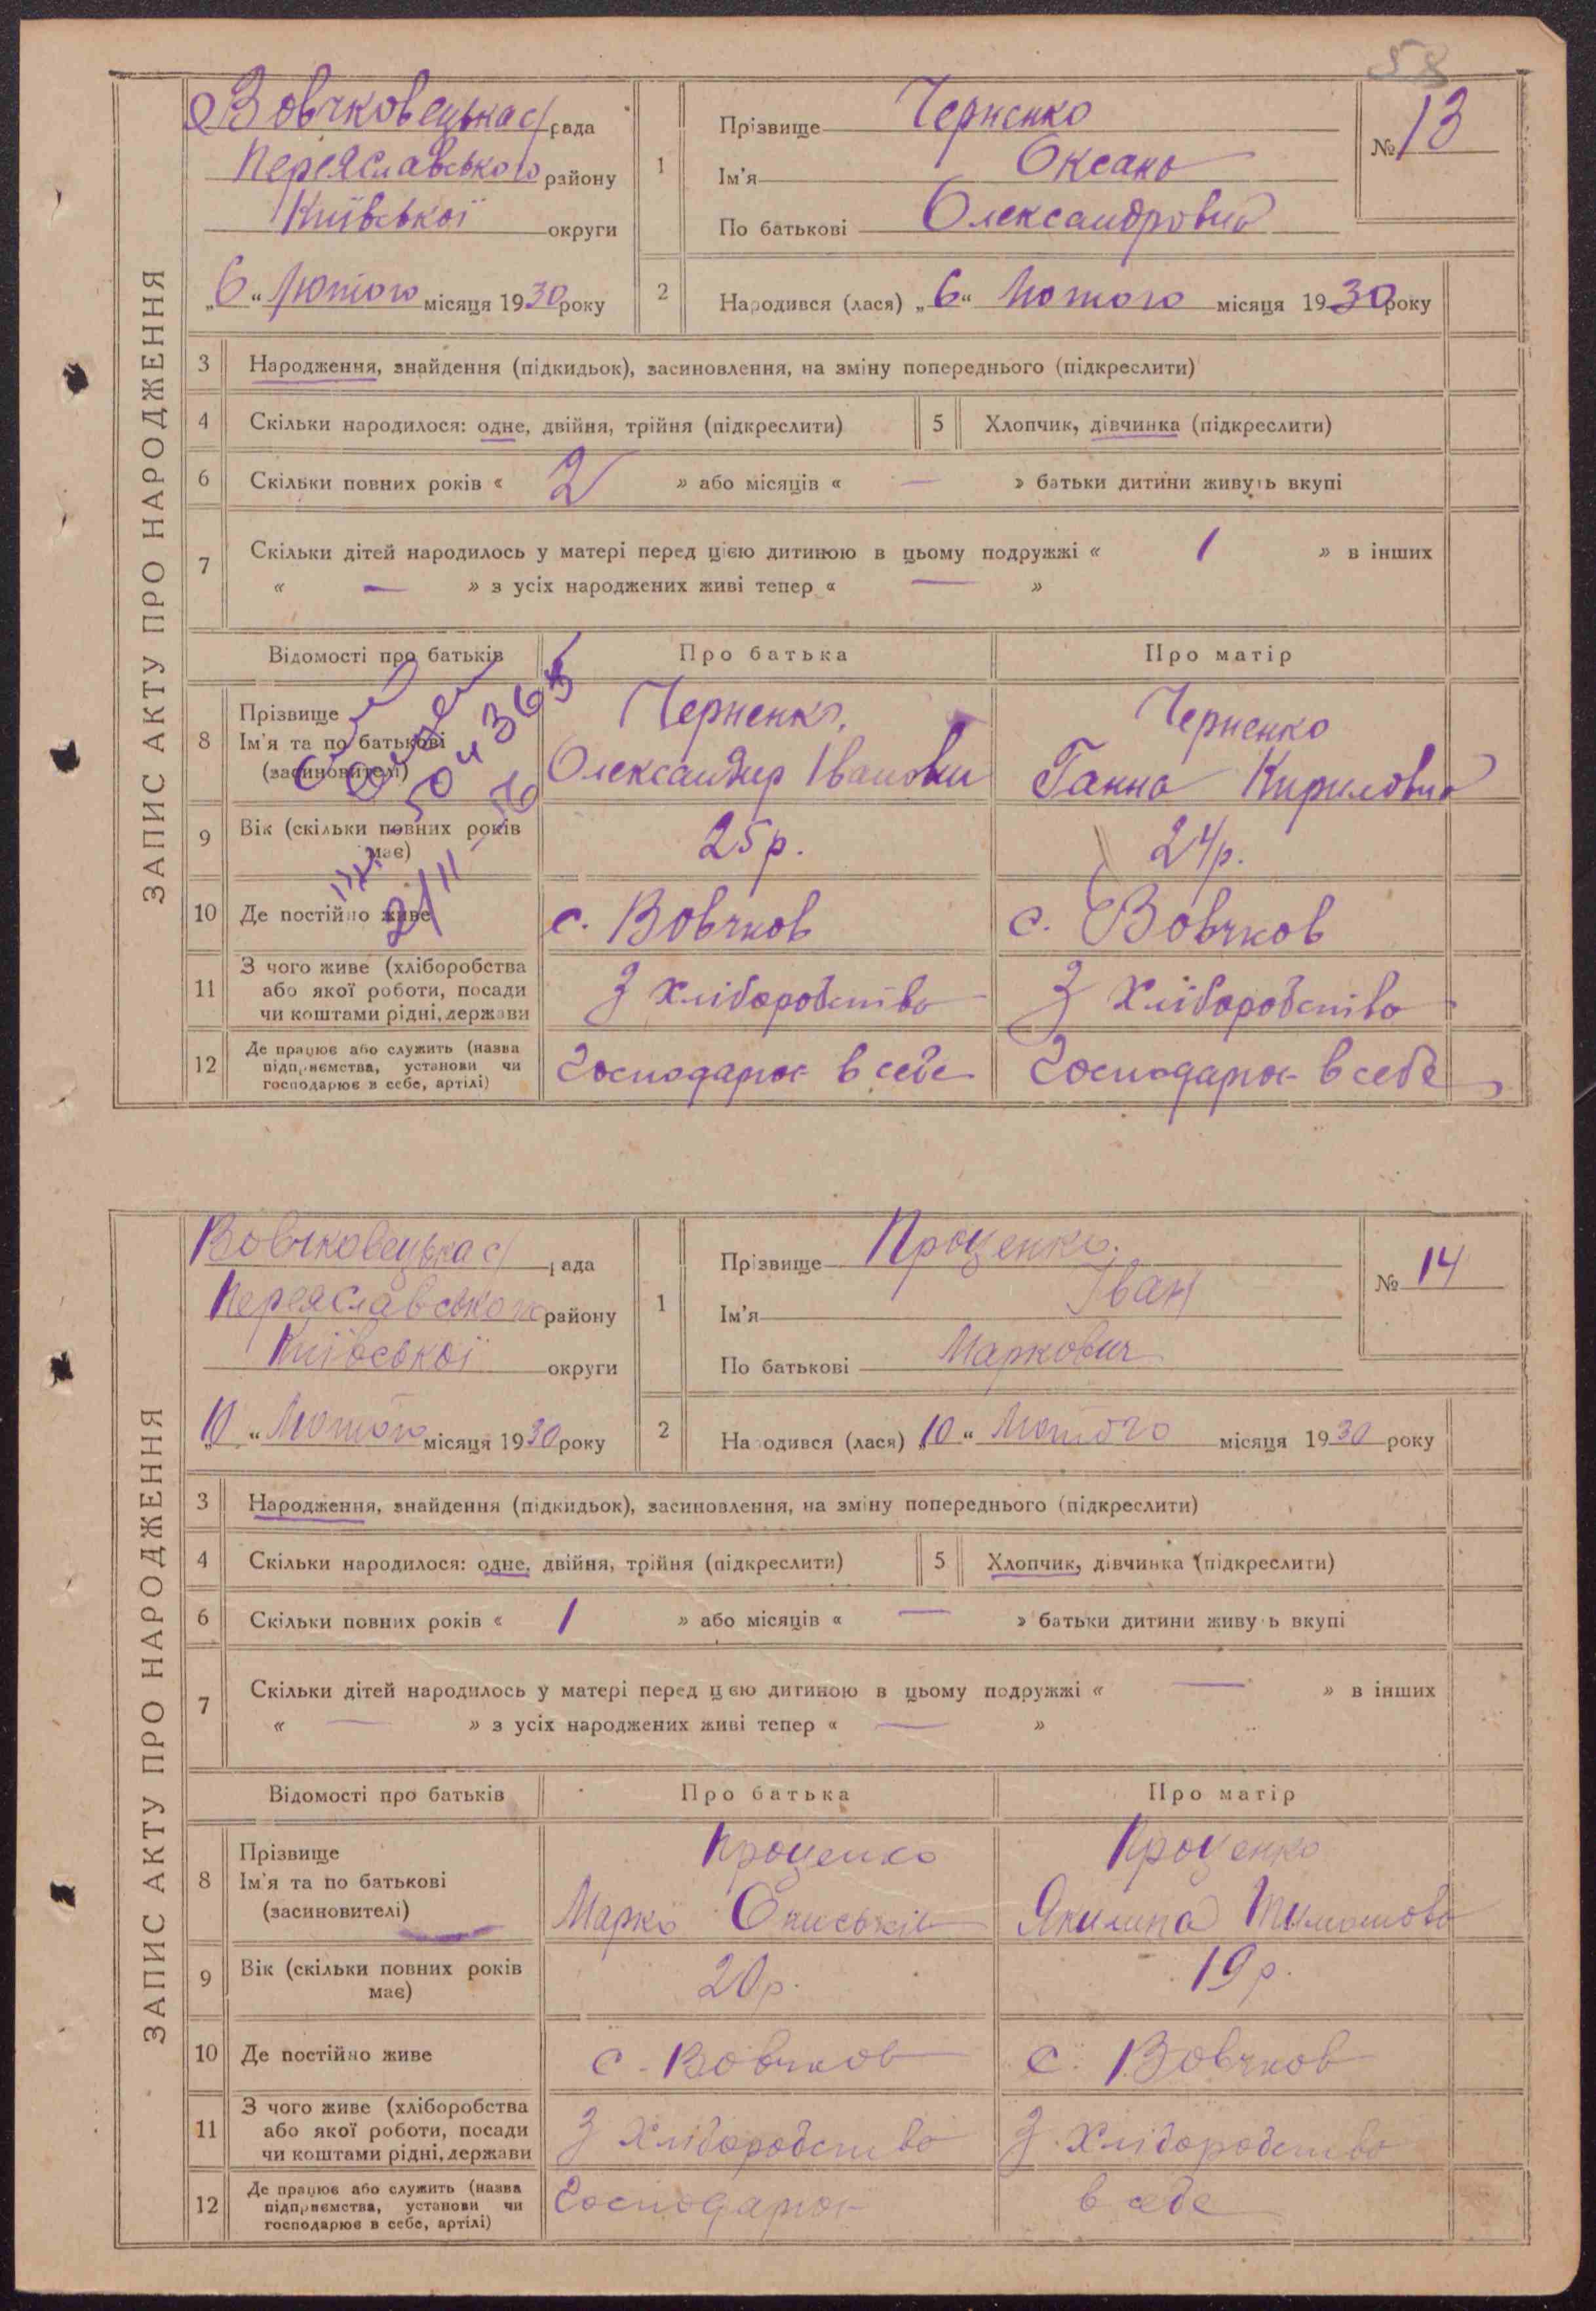 58
ЗАПИС АКТУ ПРО НАРОДЖЕННЯ
Вовчковецька с/рада
Переяславського району
Київської округи
„6“ Лютого місяця 1930 року
1
Прізвище Черненко
Ім'я Оксана
По батькові Олександровна
№ 13
2
Народився (лася) „6“ Лютого місяця 1930 року
3 Народження, знайдення (підкидьок), засиновлення, на зміну попереднього (підкреслити)
4 Скільки народилося: одне, двійня, трійня (підкреслити) 5 Хлопчик, дівчинка (підкреслити)
6 Скільки повних років « 2 » або місяців « — » батьки дитини живуть вкупі
7 Скільки дітей народилось у матері перед цією дитиною в цьому подружжі « 1 » в інших
« — » з усіх народжених живі тепер « — »
Відомості про батьків Про батька Про матір
8 Прізвище Черненко Черненко
Ім'я та по батькові
(засиновителі) Олександр Іванович Ганна Кириловна
9 Вік (скільки повних років
має) 25 р. 24 р.
10 Де постійно живе с. Вовчков с. Вовчков
11 З чого живе (хліборобства
або якої роботи, посади
чи коштами рідні, держави З Хліборобства З Хліборобства
12 Де працює або служить (назва
підприємства, установи чи
господарює в себе, артілі) Господарює в себе Господарює в себе
ЗАПИС АКТУ ПРО НАРОДЖЕННЯ
Вовчковецька с/рада
Переяславського району
Київської округи
„10“ Лютого місяця 1930 року
1
Прізвище Проценко
Ім'я Іван
По батькові Маркович
№ 14
2
Народився (лася) „10“ Лютого місяця 1930 року
3 Народження, знайдення (підкидьок), засиновлення, на зміну попереднього (підкреслити)
4 Скільки народилося: одне, двійня, трійня (підкреслити) 5 Хлопчик, дівчинка (підкреслити)
6 Скільки повних років « 1 » або місяців « — » батьки дитини живуть вкупі
7 Скільки дітей народилось у матері перед цією дитиною в цьому подружжі « — » в інших
« — » з усіх народжених живі тепер « — »
Відомості про батьків Про батька Про матір
8 Прізвище Проценко Проценко
Ім'я та по батькові
(засиновителі) Марко Якилина
9 Вік (скільки повних років
має) 20 р. 19 р.
10 Де постійно живе с. Вовчков с. Вовчков
11 З чого живе (хліборобства
або якої роботи, посади
чи коштами рідні, держави З Хліборобства З Хліборобства
12 Де працює або служить (назва
підприємства, установи чи
господарює в себе, артілі) Господарює в себе